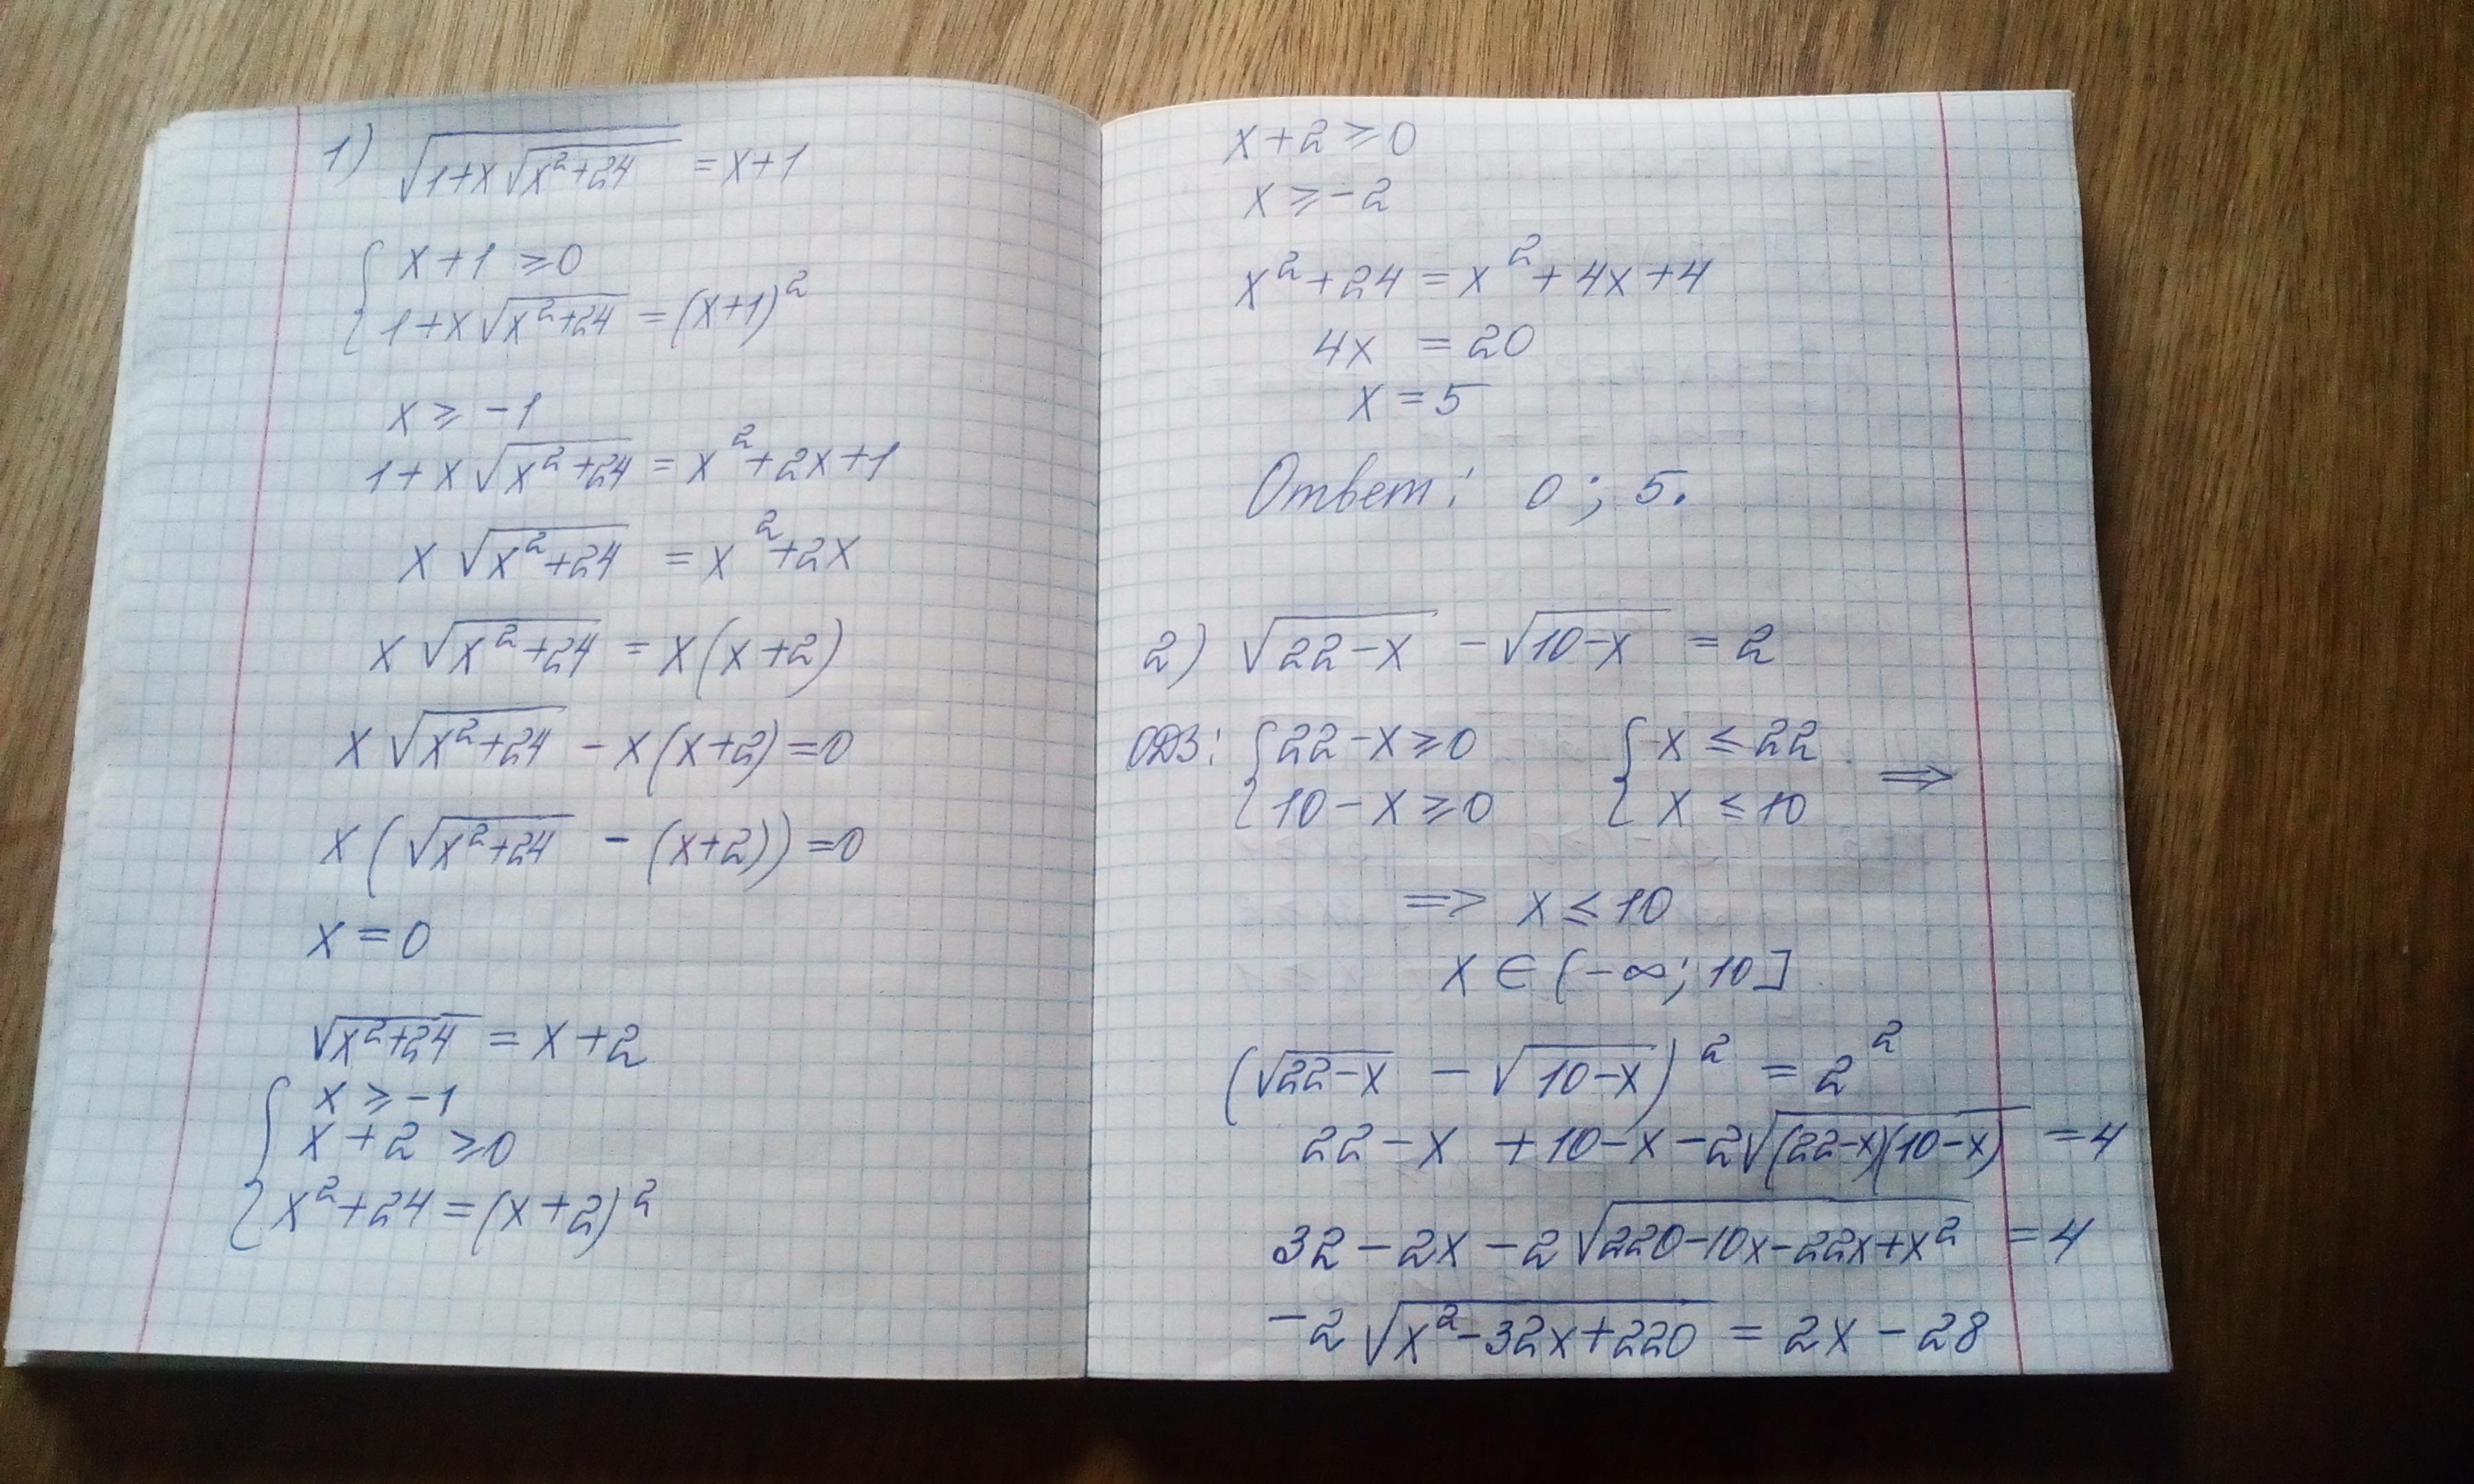 1) √(1+x√(x²+24)) = x+1
{ x+1 ≥ 0
1+x√(x²+24) = (x+1)²
x ≥ -1
1+x√(x²+24) = x²+2x+1
x√(x²+24) = x²+2x
x√(x²+24) = x(x+2)
x√(x²+24) - x(x+2) = 0
x(√(x²+24) - (x+2)) = 0
x = 0
√(x²+24) = x+2
{ x ≥ -1
x+2 ≥ 0
x²+24 = (x+2)²
x+2 ≥ 0
x ≥ -2
x²+24 = x²+4x+4
4x = 20
x = 5
Ответ: 0; 5.
2) √(22-x) - √(10-x) = 2
ОДЗ: { 22-x ≥ 0 { x ≤ 22 ⇒
10-x ≥ 0 x ≤ 10
⇒ x ≤ 10
x ∈ (-∞; 10]
(√(22-x) - √(10-x))² = 2²
22-x + 10-x - 2√((22-x)(10-x)) = 4
32 - 2x - 2√(220-10x-22x+x²) = 4
-2√(x²-32x+220) = 2x - 28